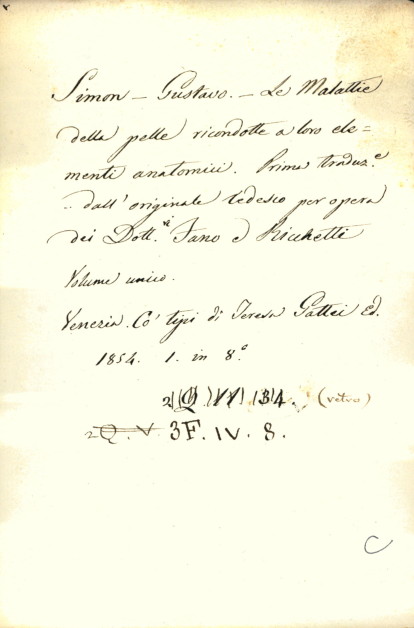 Simon - Gustavo. - Le Malattie
della pelle ricondotte a loro ele=
menti anatomici. Prima traduz.e
dall'originale tedesco per opera
dei Dott.ri Fano e Richetti
Volume unico.
Venezia. Co' tipi di Teresa Gattei Ed.
1854. 1. in 8.°
134. (retro)
2 Q. V. 3F. IV. 8.
C